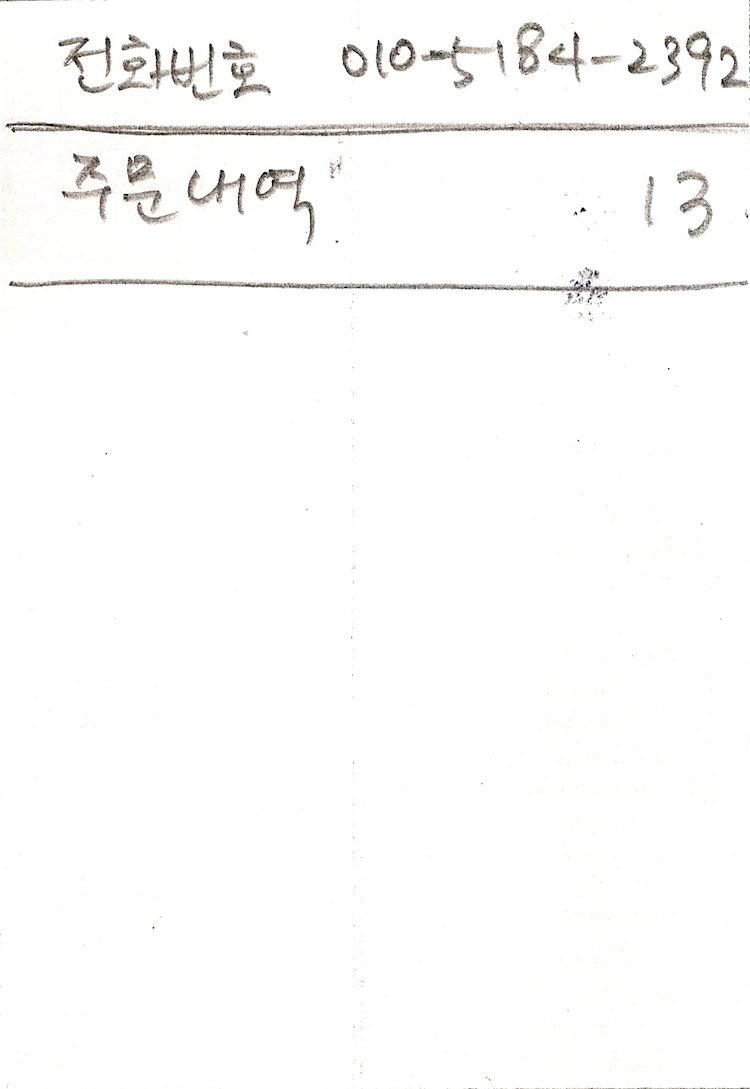 전화번호 010-5184-2392
주문내역 13